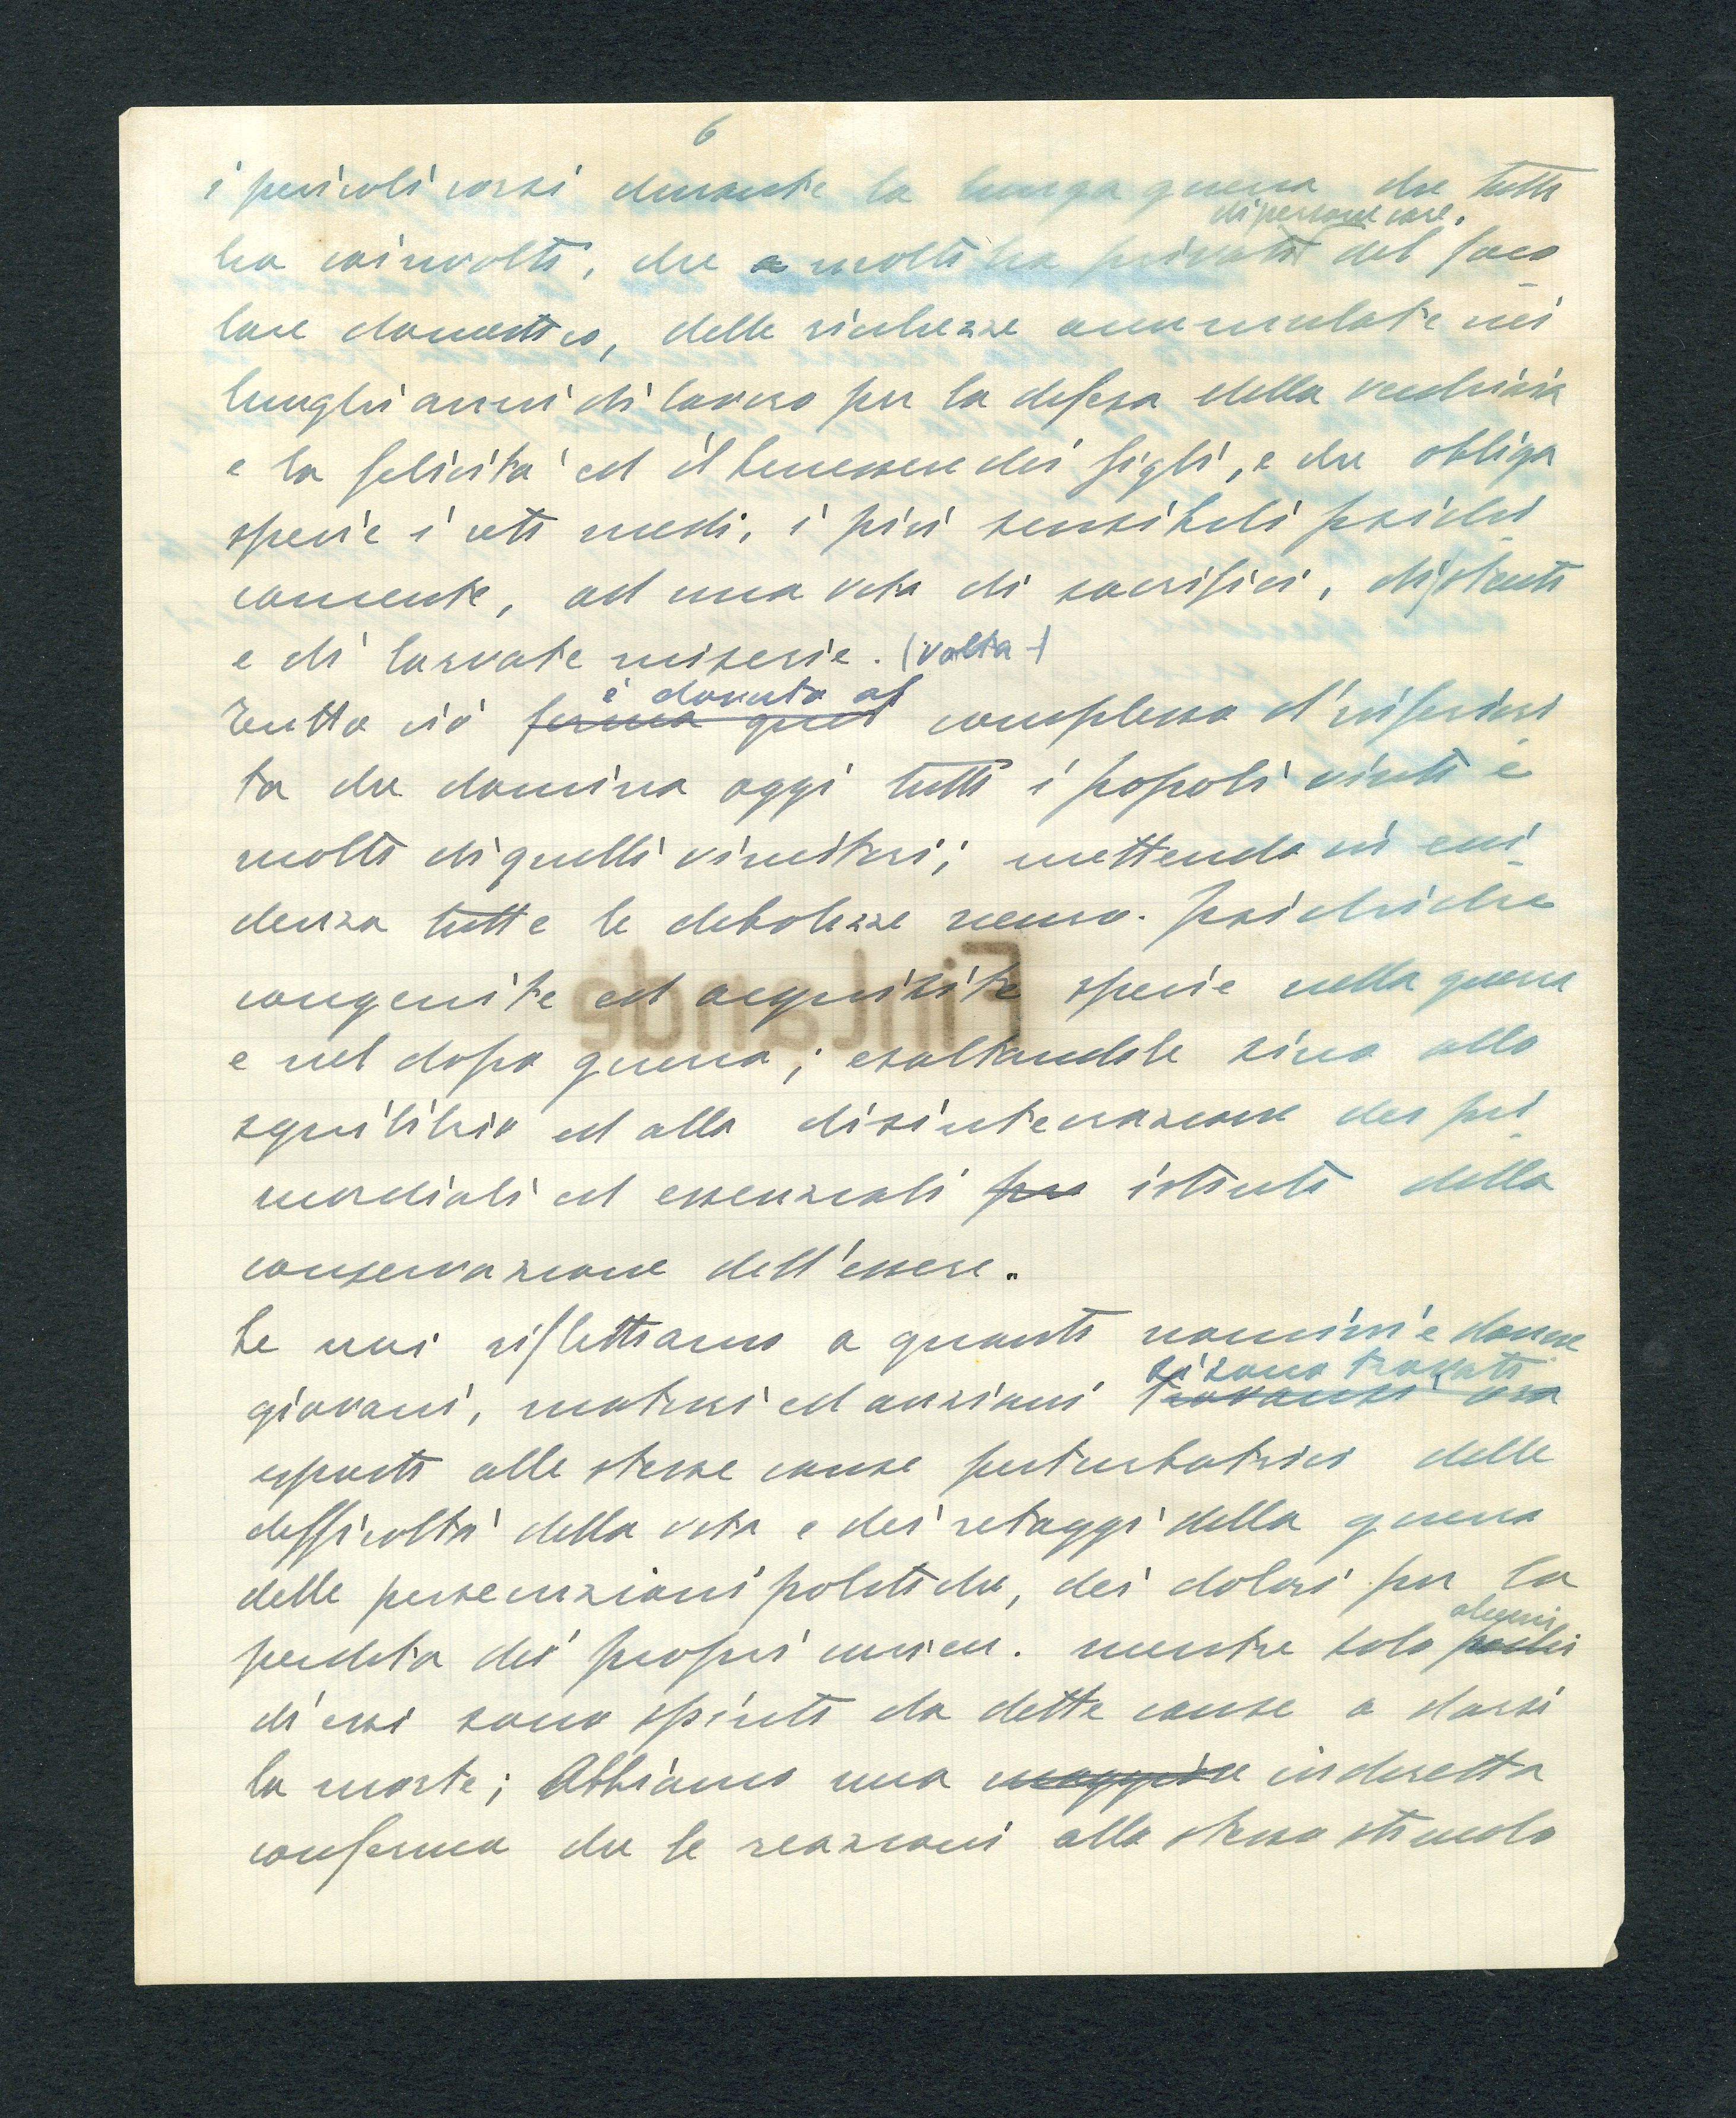 6
i pericoli corsi durante la lunga guerra che tutti
di persone care,
ha coinvolti, che a molti ha privati del foco
lare domestico, delle ricchezze accumulate nei
lunghi anni di lavoro per la difesa della vecchiaia
e la felicità ed il benessere dei figli, e che obbliga
specie i ceti medi, i più sensibili psichi-
camente, ad una vita di sacrifici, di stenti
e di larvate miserie. (volta-)
è dovuto al
Tutto ciò forma quel complesso d'inferiori
tà che domina oggi tutti i popoli vinti e
molti di quelli vincitori; mettendo in evi-
denza tutte le debolezze neuro-psichiche
congenite ed acquisite specie nella guerra
e nel dopo guerra; esaltandole sino allo
squilibrio ed alla disintegrazione dei pri-
mordiali ed essenziali istinti della
conservazione dell'essere.
Se noi riflettiamo a quanti uomini e donne
si sono trovati
giovani, maturi ed anziani trovansi ora
esposti alle stesse cause perturbatrici delle
difficoltà della vita e dei retaggi della guerra
delle persecuzioni politiche, dei dolori per la
alcuni
perdita dei propri cari ecc. mentre solo pochi
di essi sono spinti da dette cause a darsi
la morte; Abbiamo una maggiore indiretta
conferma che le reazioni allo stesso stimolo
Finlande